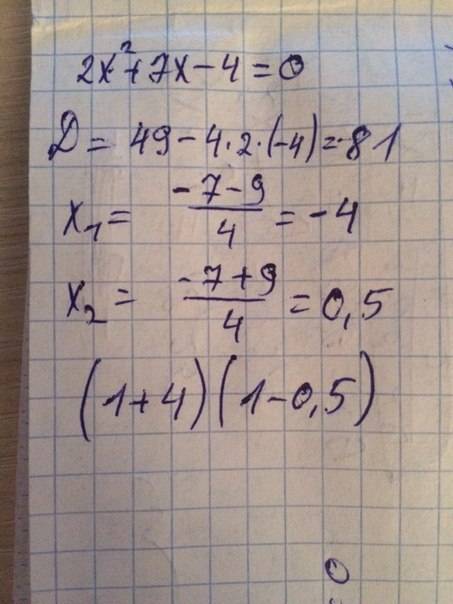 2x²+7x-4=0
D= 49-4·2·(-4)=81
x₁= (-7-9)/4 = -4
x₂= (-7+9)/4 = 0,5
(1+4)(1-0,5)